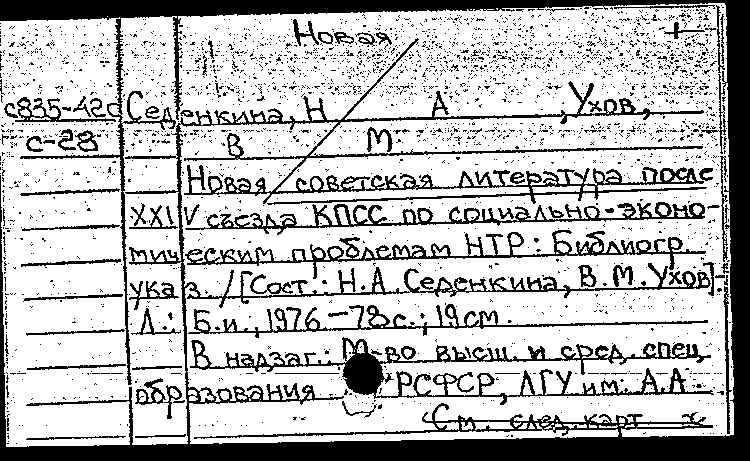 Новая
с835-42с Седенкина, Н А , Ухов,
с-28 В М
Новая советская литература после
XXIV съезда КПСС по социально-эконо-
мическим проблемам НТР: Библиогр.
указ. /[Сост.: Н.А. Седенкина, В.М. Ухов].-
Л.: Б.и., 1976 -78с.; 19см.
В надзаг.: М-во высш. и сред. спец.
образования РСФСР, ЛГУ им. А.А.
См. след. карт